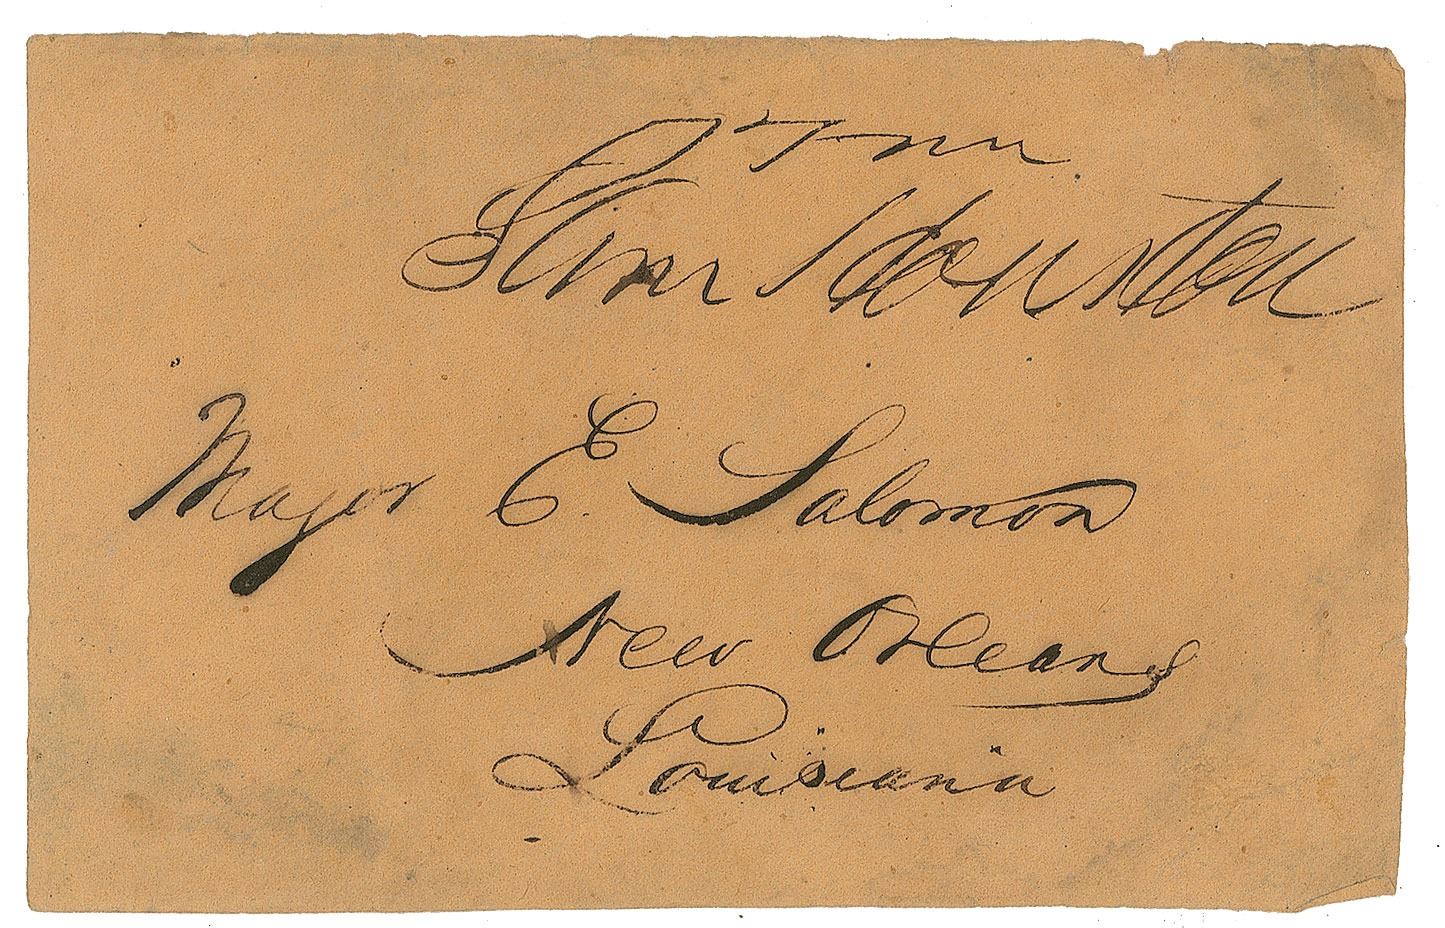 Sam Houston
Major E. Salomon
New Orleans
Louisiana